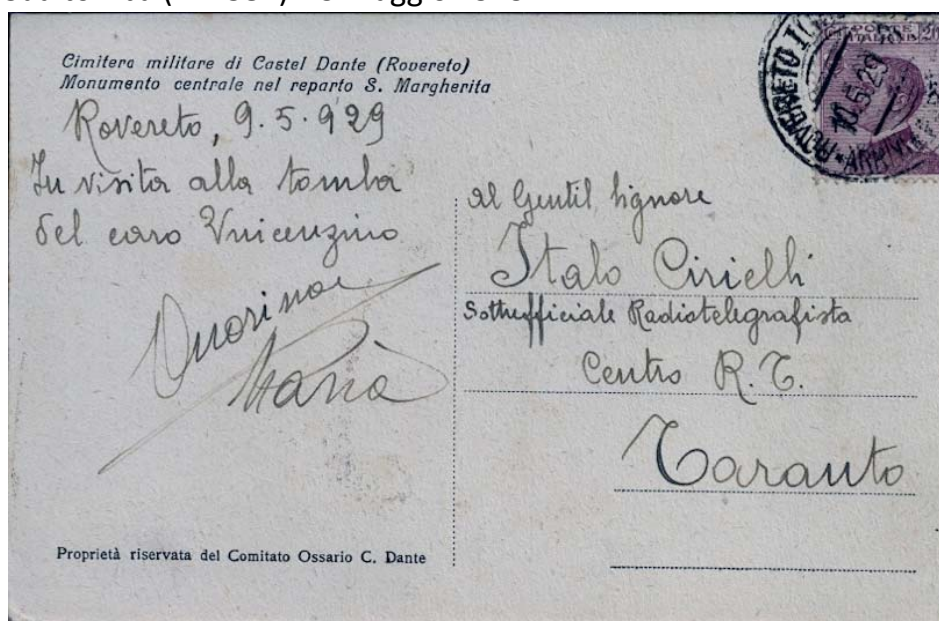 Cimitero militare di Castel Dante (Rovereto)
Monumento centrale nel reparto S. Margherita
Rovereto, 9.5.929
In visita alla tomba
del caro Vincenzino
Maria
Proprietà riservata del Comitato Ossario C. Dante
ROVERETO
10.5.29
POSTE
ITALIANE
20
al Gentil Signore
Italo Cirielli
Sottufficiale Radiotelegrafista
Centro R.T.
Taranto